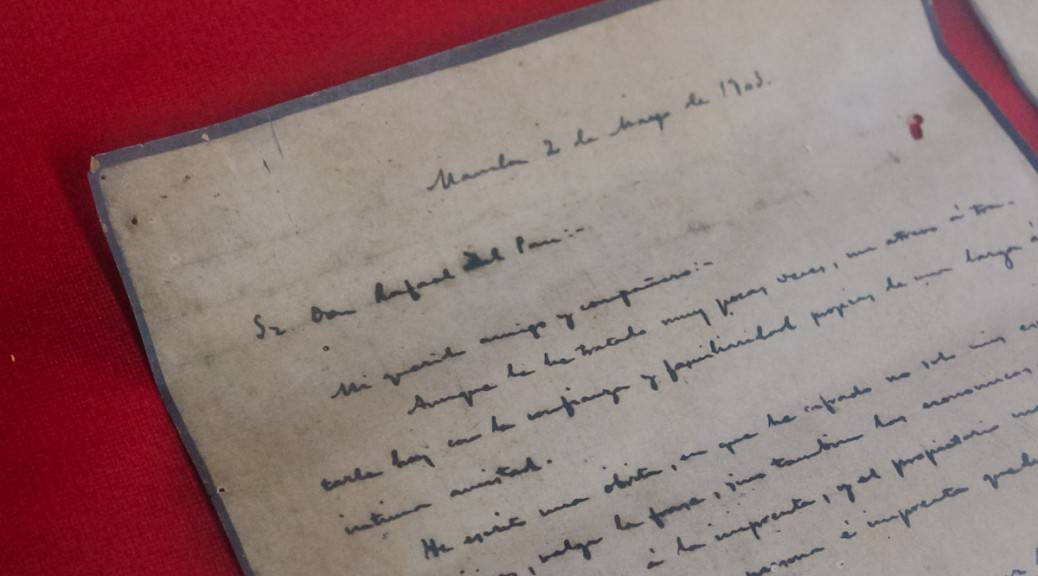 Manila 2 de Mayo de 1903.
Sr Don Rafael del Pan:-
Mi querido amigo y compañero:-
Aunque le he tratado muy pocas veces, me atrevo á tra-
tarle hoy con la confianza y familiaridad propias de una larga é
intima amistad.
He escrito una obrita, en que he cifrado no solo mis
valga la frase, sino tambien las economicas
á la imprenta, y el propietario
é imprenta